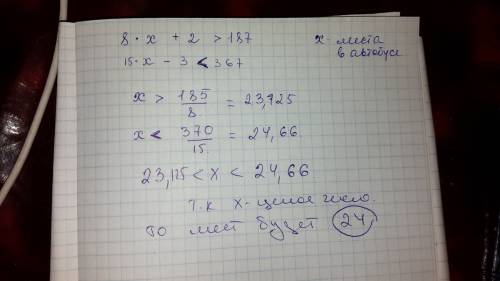 8 · x + 2 > 187
x - места
в автобусе
15 · x - 3 < 367
x > 185/8 = 23,125
x < 370/15 = 24,66
23,125 < x < 24,66
т.к x - целое число.
то мест будет 24.